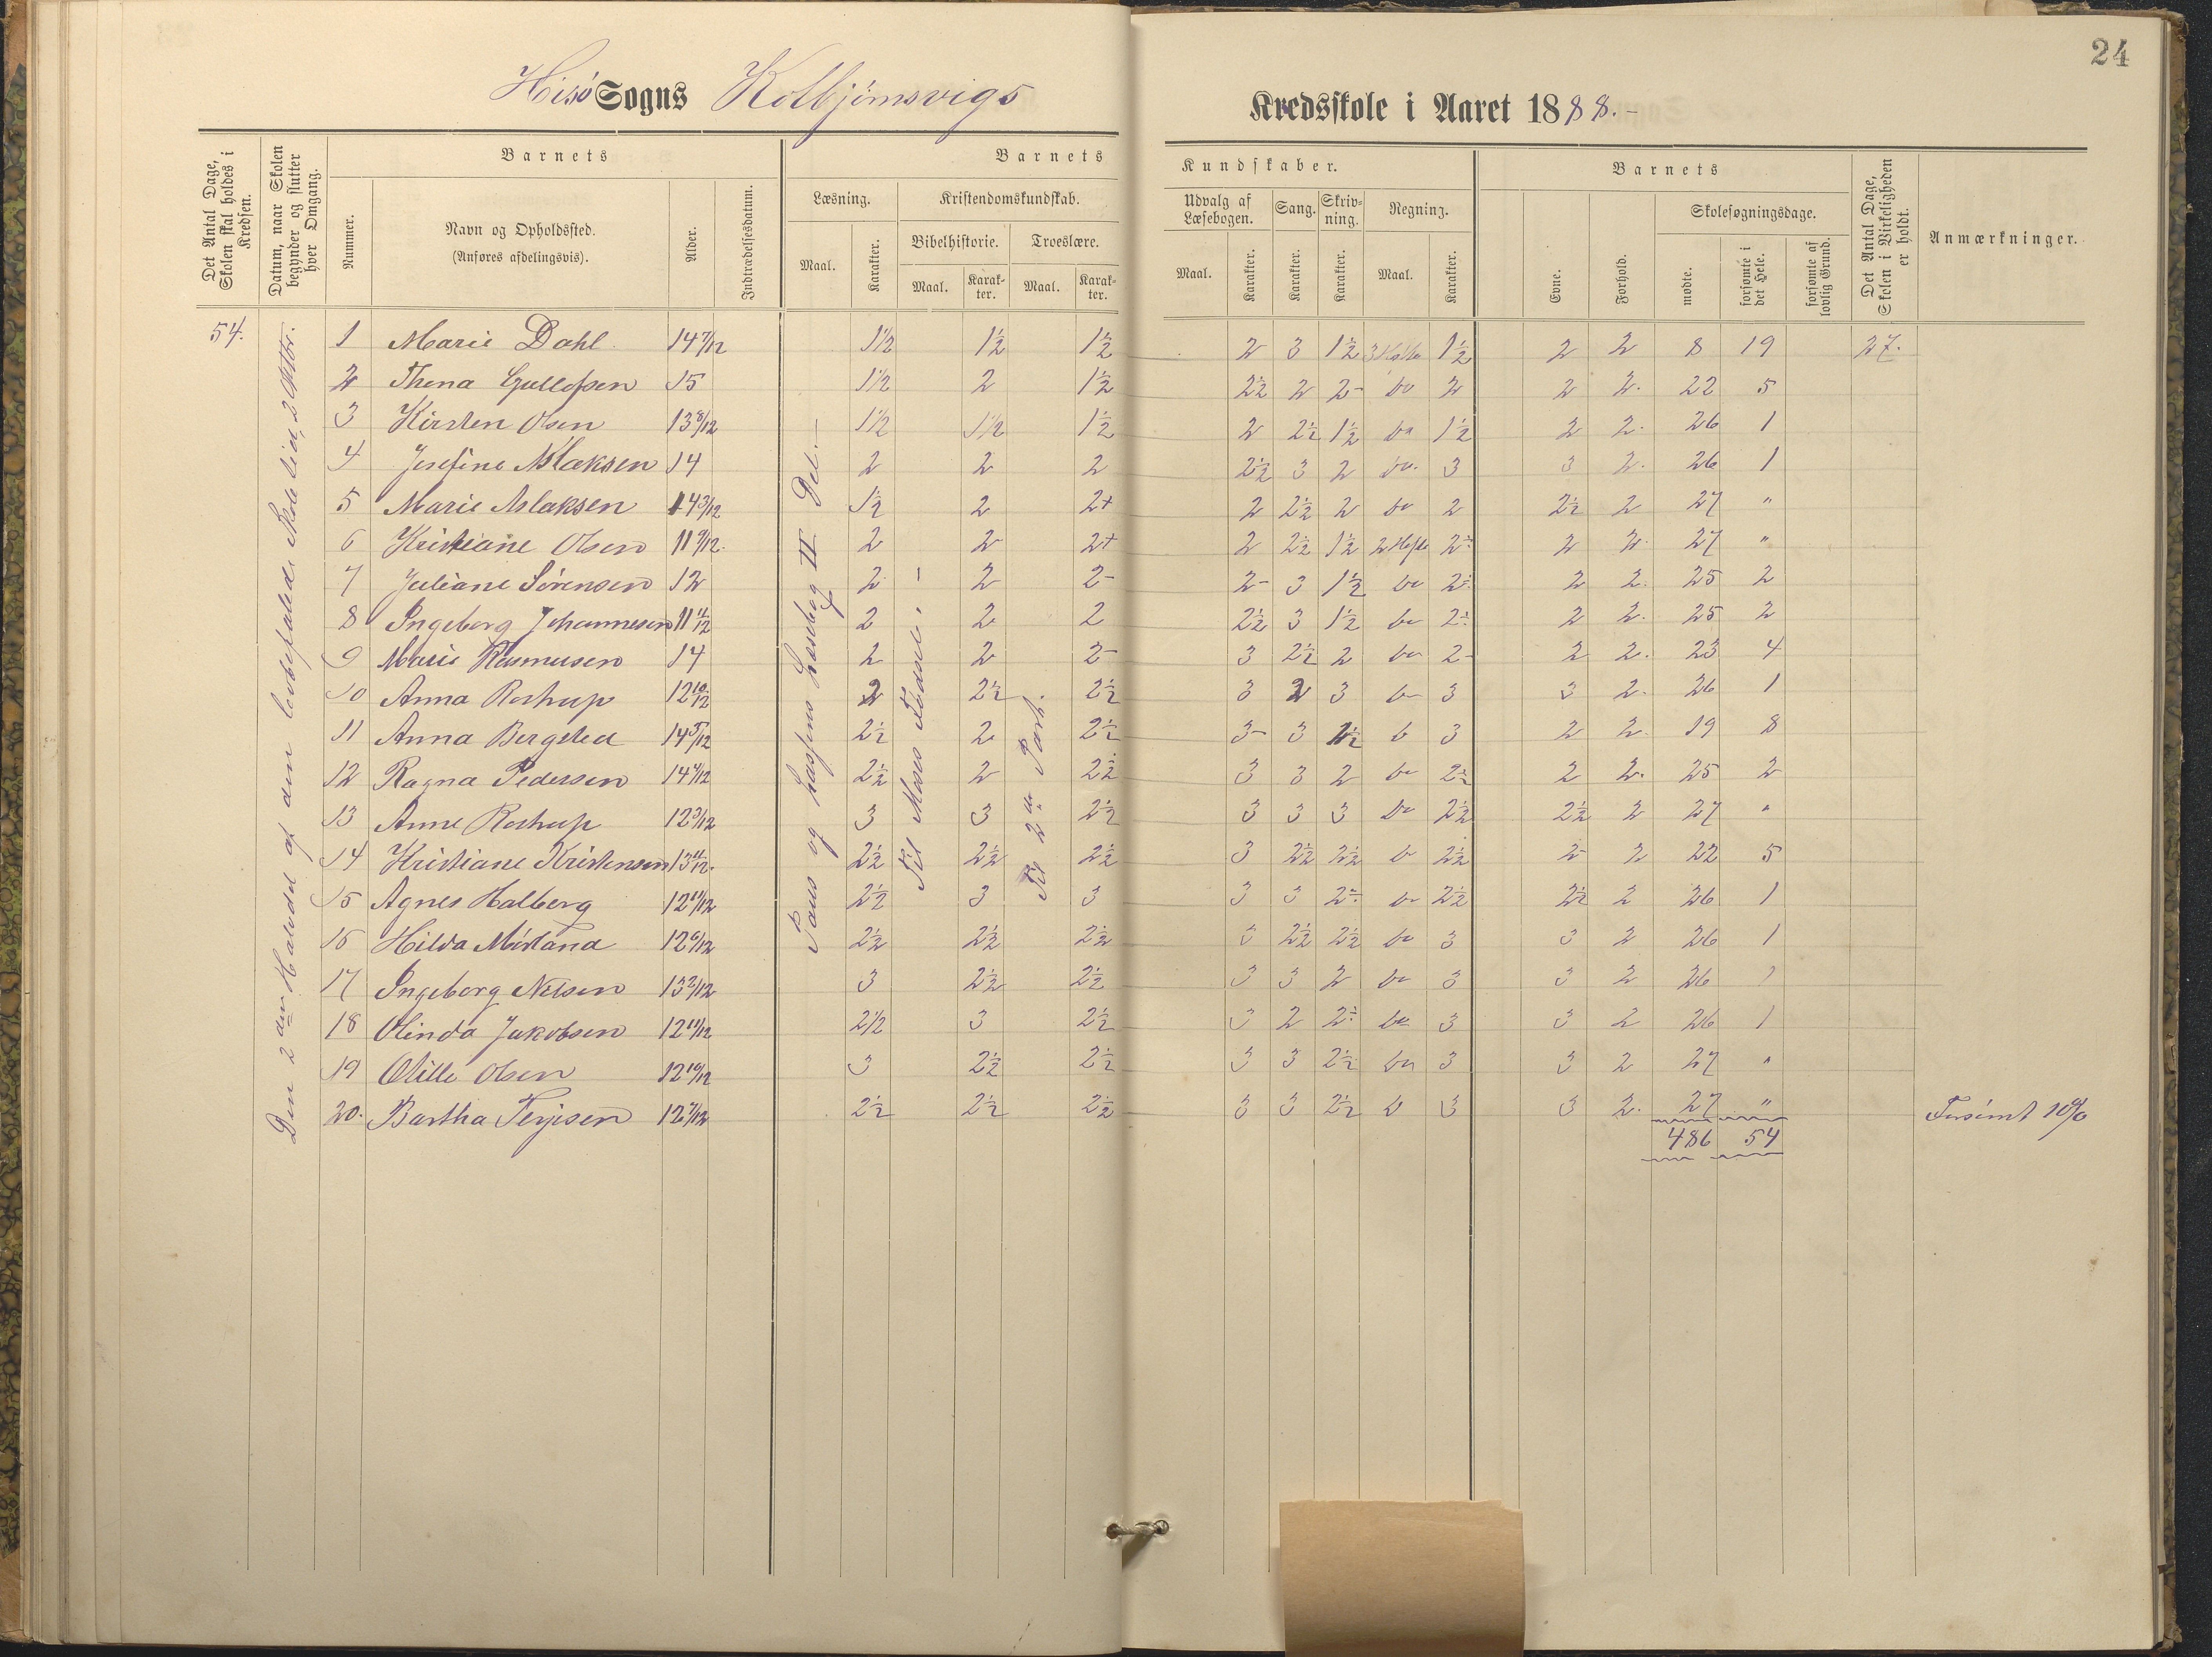 24
Hisø Sogns Kolbjørnsvigs Kredsskole i Aaret 1888.-
Det Antal Dage, Skolen skal holdes i Kredsen.
Datum, naar Skolen begynder og slutter hver Omgang.
Barnets
Nummer.
Navn og Opholdssted.
(Anføres afdelingsvis).
Alder.
Indtrædelsesdatum.
Barnets Kundskaber.
Læsning.
Maal.
Karakter.
Kristendomskundskab.
Bibelhistorie.
Maal.
Karakter.
Troeslære.
Maal.
Karakter.
Udvalg af Læsebogen.
Maal.
Karakter.
Sang.
Karakter.
Skrivning.
Karakter.
Regning.
Maal.
Karakter.
Barnets
Evne.
Forhold.
Skolesøgningsdage.
mødte.
forsømte i det Hele.
forsømte af lovlig Grund.
Det Antal Dage, Skolen i Virkeligheden er holdt.
Anmærkninger.
Den 2den Halvdel af den lovbefalede Skoletid
Paus og Lassens Læsebog II Del.
Til Moses Fødsel
Til 2den Part.
54. 1 Marie Dahl 14 7/12 1½ 1½ 1½ 2 3 1½ 3 Hefte 1½ 2 2 8 19 27.
2 Thena Gullefsen 15 1½ 2 1½ 2½ 2 2- do 2 2 2. 22 5
3 Kirsten Olsen 13 8/12 1½ 1½ 1½ 2 2½ 1½ do 1½ 2 2. 26 1
4 Josefine Aslaksen 14 2 2 2 2½ 3 2 do. 3 3 2. 26 1
5 Marie Aslaksen 14 3/12 1½ 2 2+ 2 2½ 2 do 2 2½ 2 27 "
6 Kristiane Olsen 11 9/12 2 2 2+ 2 2½ 1½ 2 Hefte 2½ 2 2. 27 "
7 Juliane Sørensen 12 2 2 2- 2- 3 1½ do 2½ 2 2. 25 2
8 Ingeborg Johannesen 11 11/12 2 2 2 2½ 3 1½ do 2½ 2 2. 25 2
9 Marie Rasmusen 14 2 2 2- 3 2½ 2 do 2- 2 2. 23 4
10 Anna Rostrup 12 10/12 2 2½ 2½ 3 2 3 do 3 3 2. 26 1
11 Anna Bergsted 14 5/12 2½ 2 2½ 3- 3 1½ do 3 2 2. 19 8
12 Ragna Pedersen 14 4/12 2½ 2 2½ 3 3 2 do 2½ 2 2. 25 2
13 Anne Rostrup 12 3/12 3 3 2½ 3 3 3 do 2½ 2½ 2 27 "
14 Kristiane Kristensen 13 11/12. 2½ 2½ 2½ 3 2½ 2½ do 2½ 2- 2 22 5
15 Agnes Halberg 12 11/12 2½ 3 3 3 3 2½ do 2½ 2½ 2 26 1
16 Hilda Mørland 12 6/12 2½ 2½ 2½ 3 2½ 2½ do 3 3 2 26 1
17 Ingeborg Nilsen 13 2/12 3 2½ 2½ 3 3 2 do 3 3 2 26 1
18 Olinda Jakobsen 12 11/12 2½ 3 2½ 3 2 2½ do 3 3 2 26 1
19 Olille Olsen 12 10/12 3 2½ 2½ 3 3 2½ do 3 3 2 27 "
20. Bartha Terjesen 12 7/12 2½ 2½ 2½ 3 3 2½ do 3 3 2. 27 " Forsømt 10%
486 54